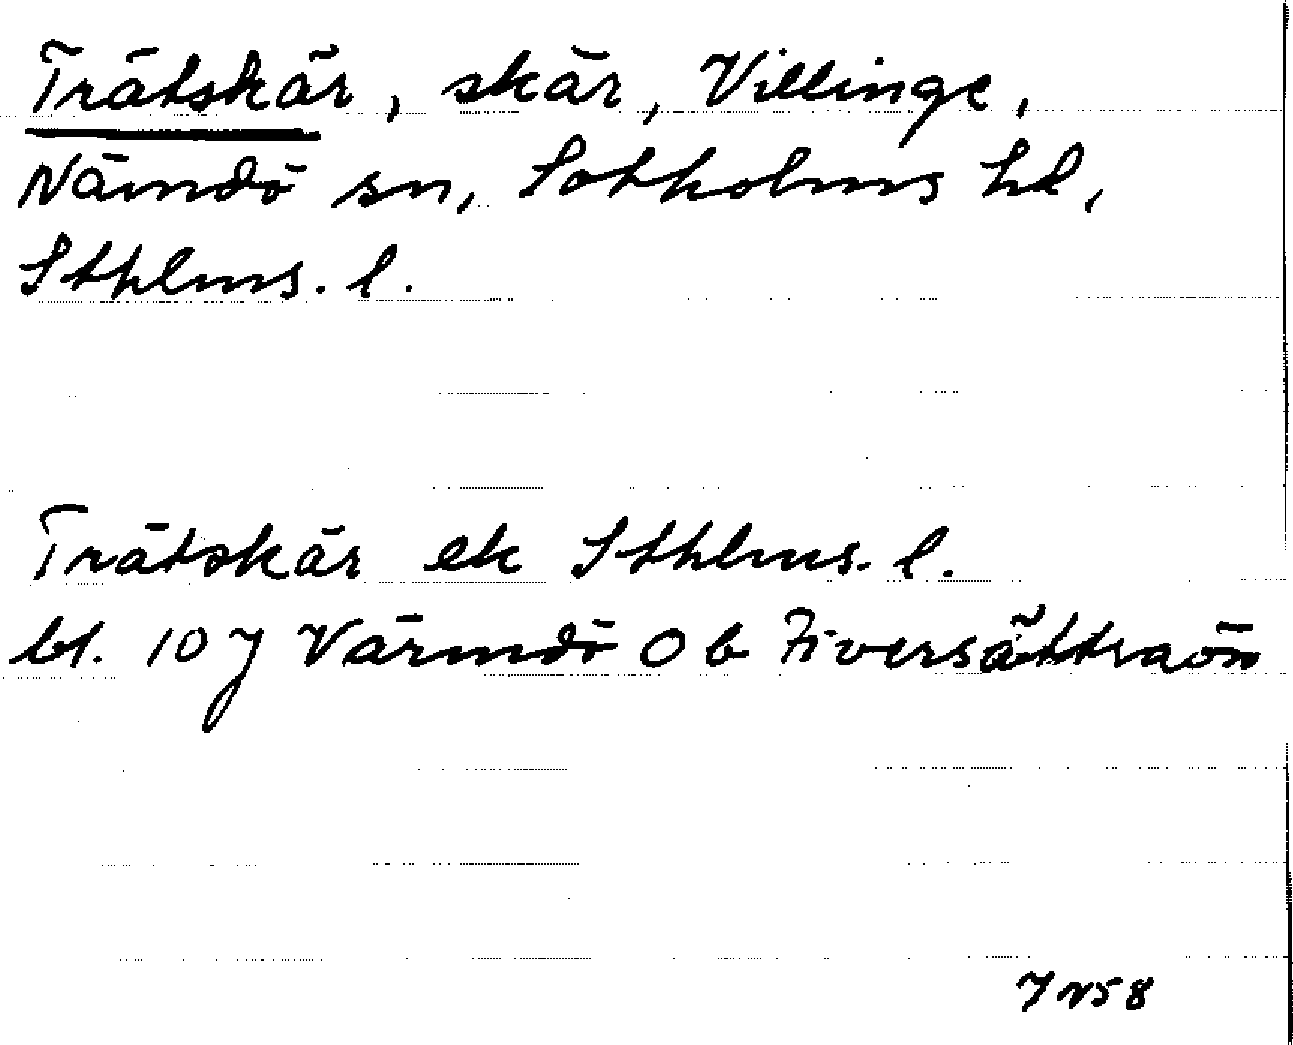 Trätskär, skär, Villinge,
Nämdö sn, Sotholms hd,
Sthlms. l.
Trätskär ek Sthlms. l.
bl. 10 J Värmdö Ob Fiversättraön